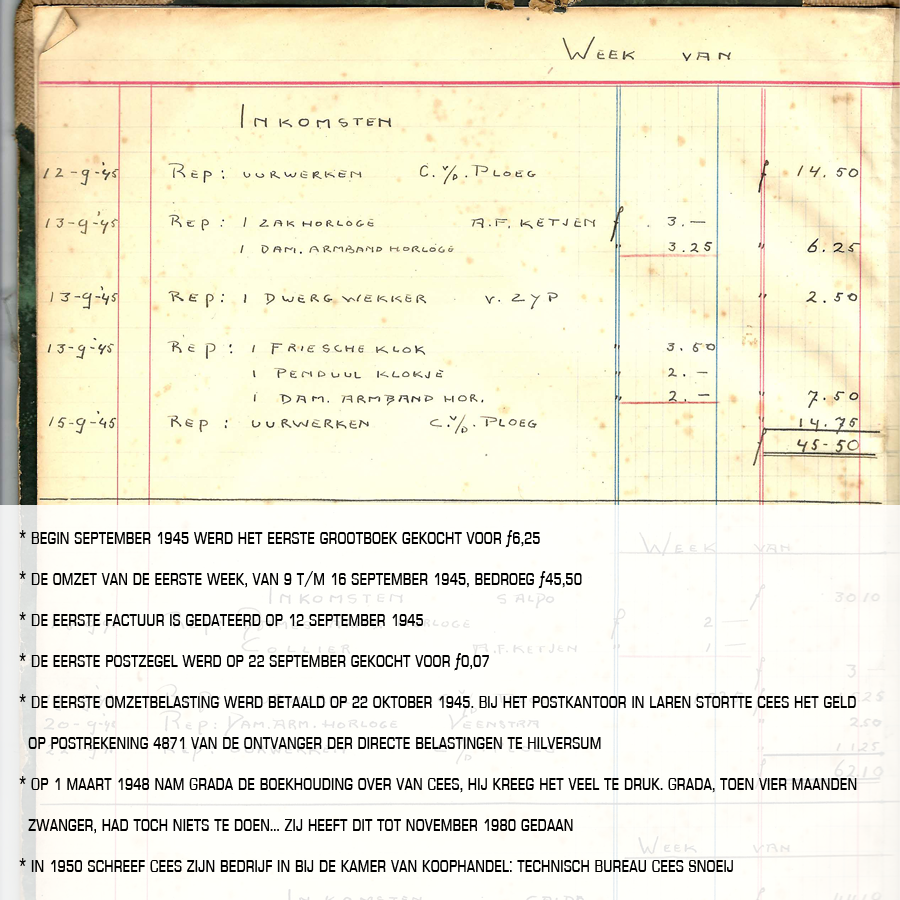 WEEK VAN
INKOMSTEN
12-9-'45 REP: UURWERKEN C. v/D. PLOEG ƒ 14.50
13-9-'45 REP: 1 ZAKHORLOGE A.F. KETJEN ƒ 3.—
1 DAM. ARMBAND HORLOGE " 3.25 " 6.25
13-9-'45 REP: 1 DWERG WEKKER V. ZYP " 2.50
13-9-'45 REP: 1 FRIESCHE KLOK " 3.50
1 PENDUUL KLOKJE 2.—
1 DAM. ARMBAND HOR. " 2.— " 7.50
15-9-'45 REP: UURWERKEN C. v/D. PLOEG " 14.75
ƒ 45-50
* BEGIN SEPTEMBER 1945 WERD HET EERSTE GROOTBOEK GEKOCHT VOOR ƒ6,25
WEEK VAN
* DE OMZET VAN DE EERSTE WEEK, VAN 9 T/M 16 SEPTEMBER 1945, BEDROEG ƒ45,50
INKOMSTEN SALDO ƒ 30.10
* DE EERSTE FACTUUR IS GEDATEERD OP 12 SEPTEMBER 1945
COLLIER A.F. KETJEN 1 —
* DE EERSTE POSTZEGEL WERD OP 22 SEPTEMBER GEKOCHT VOOR ƒ0,07
3 —
* DE EERSTE OMZETBELASTING WERD BETAALD OP 22 OKTOBER 1945. BIJ HET POSTKANTOOR IN LAREN STORTTE CEES HET GELD
20-9-'45 REP: DAM. ARM. HORLOGE VEENSTRA 2.50
OP POSTREKENING 4871 VAN DE ONTVANGER DER DIRECTE BELASTINGEN TE HILVERSUM
11.25
62.10
* OP 1 MAART 1948 NAM GRADA DE BOEKHOUDING OVER VAN CEES, HIJ KREEG HET VEEL TE DRUK. GRADA, TOEN VIER MAANDEN
ZWANGER, HAD TOCH NIETS TE DOEN... ZIJ HEEFT DIT TOT NOVEMBER 1980 GEDAAN
WEEK VAN
* IN 1950 SCHREEF CEES ZIJN BEDRIJF IN BIJ DE KAMER VAN KOOPHANDEL: TECHNISCH BUREAU CEES SNOEIJ
INKOMSTEN SALDO